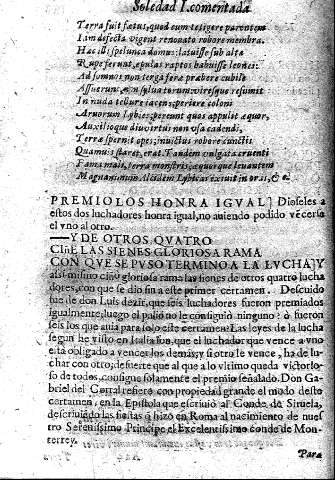 Soledad I. comentada
Terra fuit fœtus, quod cum tetigere parentem
Iam defecta vigent renouato robore membra.
Hæc illi spelunca domus: latuisse sub alta
Rupe ferunt, epulas raptos habuisse leones:
Ad somnos non terga feræ præbere cubile
Assuerunt, non sylua torum: viresque resumit
In nuda tellure iacens; periere coloni
Aruorum Lybies; pereunt quos appulit æquor,
Auxilioque diu virtus non vsa cadendi,
Terræ spernit opes; inuictus robore cunctis
Quamuis staret, erat. Tandem vulgata cruenti
Fama mali, terras monstris, æquorque leuantem
Magnanimum Alcidem Lybicas exciuit in oras, &c.
PREMIOLOS HONRA IGVAL] Dioseles a
estos dos luchadores honra igual, no auiendo podido vẽcerse
el vno al otro.
—Y DE OTROS QVATRO
CIñE LAS SIENES GLORIOSA RAMA
CON QVE SE PVSO TERMINO A LA LVCHA] Y
assi mismo ciñò gloriosa rama las sienes de otros quatro lucha
dores, con que se dio fin a este primer certamen. Descuido
fue de don Luis dezir, que seis luchadores fueron premiados
igualmente, luego el palio no le consiguiò ninguno: ò fueron
seis los que auia para solo este certamen? Las leyes de la lucha
segun he visto en Italia son, que el luchador que vence a vno
està obligado a vencer los demas; y si otro le vence, ha de lu-
char con otro, de suerte que al que a lo vltimo queda victorio-
so de todos, consigue solamente el premio señalado. Don Ga-
briel del Corral refiere con propiedad grande el modo desto
certamen, en la Epistola que escriuiò al Conde de Siruela,
descriuiẽdo las fiestas q̃ hizo en Roma al nacimiento de nues-
tro Serenissimo Principe el Excelentissimo conde de Mon-
terrey.
Para